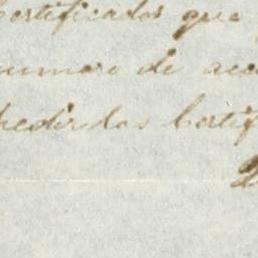 certificados que
numero de acc
pedir das Certif